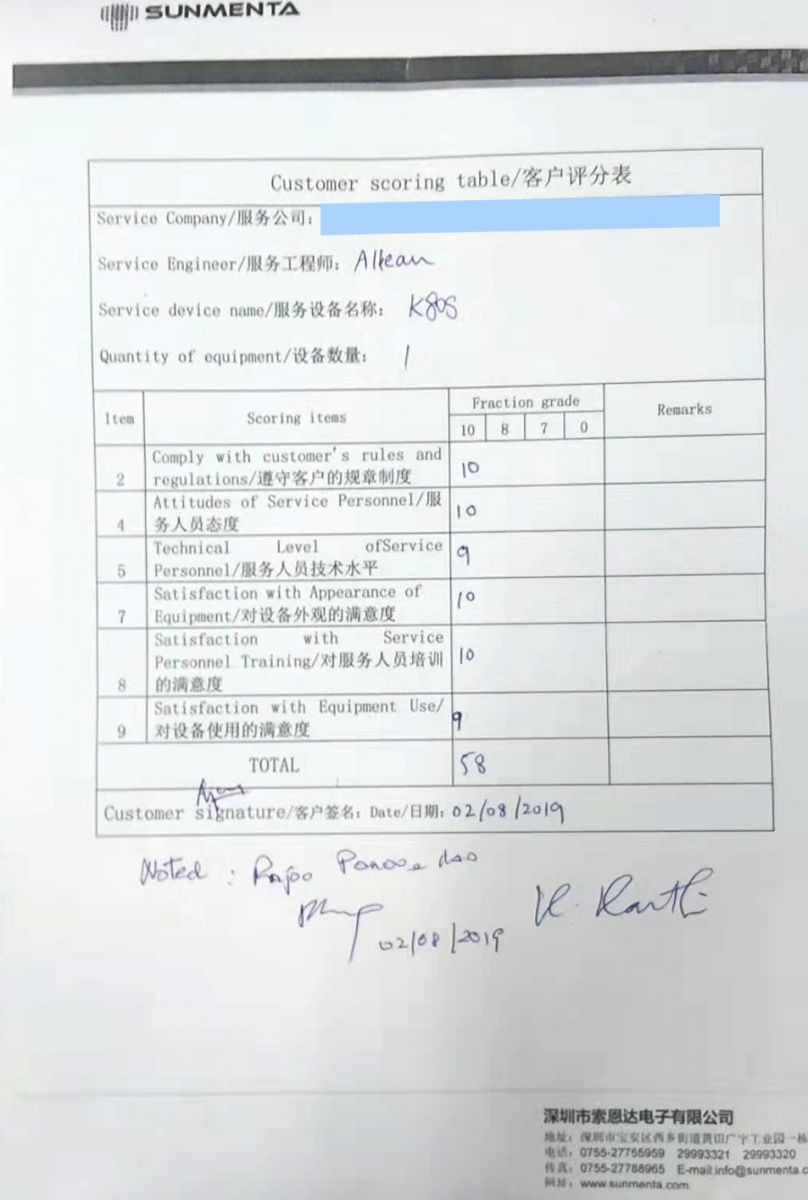 SUNMENTA
Customer scoring table/客户评分表
Service Company/服务公司:
Service Engineer/服务工程师: Alkean
Service device name/服务设备名称: K80S
Quantity of equipment/设备数量: 1
Item Scoring items Fraction grade Remarks
10 8 7 0
Comply with customer's rules and
2 regulations/遵守客户的规章制度 10
Attitudes of Service Personnel/服
4 务人员态度 10
Technical Level ofService
5 Personnel/服务人员技术水平 9
Satisfaction with Appearance of
7 Equipment/对设备外观的满意度 10
Satisfaction with Service
Personnel Training/对服务人员培训 10
8 的满意度
Satisfaction with Equipment Use/
9 对设备使用的满意度 9
TOTAL 58
Customer signature/客户签名: Date/日期: 02/08/2019
Noted :
02/08/2019
深圳市索恩达电子有限公司
地址: 深圳市宝安区西乡街道黄田广宇工业园一栋
电话: 0755-27755959 29993321 29993320
传真: 0755-27788965 E-mail:info@sunmenta.c
网址: www.sunmenta.com